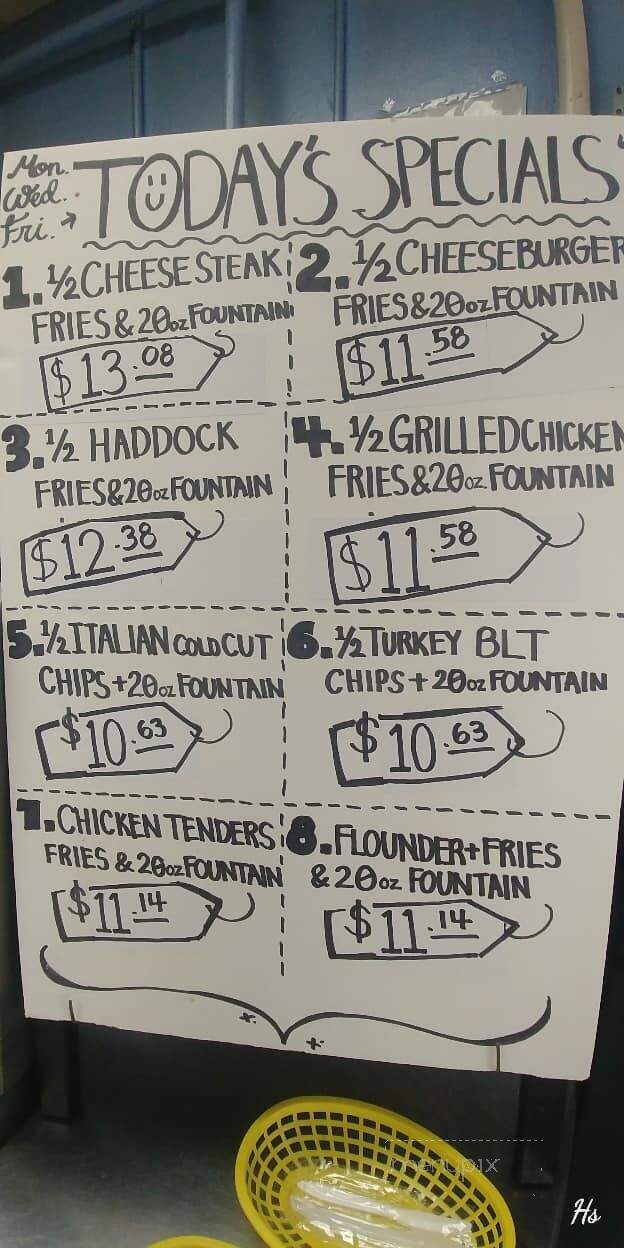 Mon.
Wed.
Fri. →
TODAY'S SPECIALS
1. 1/2 CHEESE STEAK
FRIES & 20oz FOUNTAIN
$13.08
2. 1/2 CHEESEBURGER
FRIES & 20oz FOUNTAIN
$11.58
3. 1/2 HADDOCK
FRIES & 20oz FOUNTAIN
$12.38
4. 1/2 GRILLED CHICKEN
FRIES & 20oz FOUNTAIN
$11.58
5. 1/2 ITALIAN COLD CUT
CHIPS + 20oz FOUNTAIN
$10.63
6. 1/2 TURKEY BLT
CHIPS + 20oz FOUNTAIN
$10.63
7. CHICKEN TENDERS
FRIES & 20oz FOUNTAIN
$11.14
8. FLOUNDER + FRIES
& 20oz FOUNTAIN
$11.14
menypix
Hs